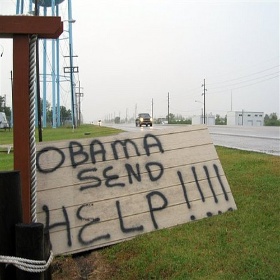 OBAMA
SEND
HELP!!!!